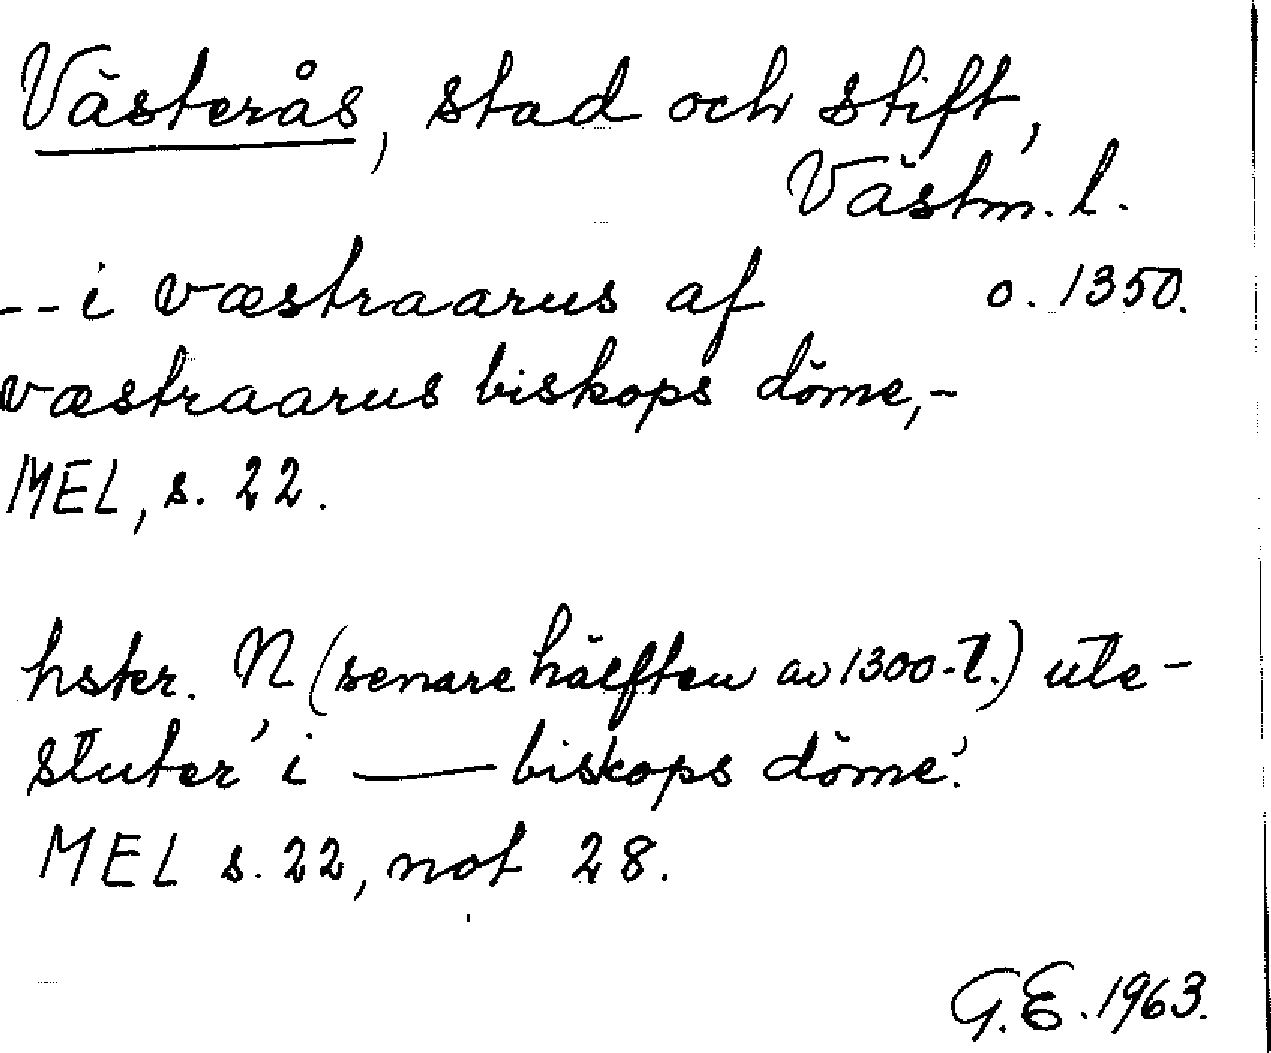 Västerås, stad och stift,
Västm. l.
-- i væstraarus af o. 1350.
væstraarus biskops döme,-
MEL, s. 22.
hskr. N (senare hälften av 1300-t.) ute-
sluter 'i — biskops döme'.
MEL s. 22, not 28.
G.E. 1963.